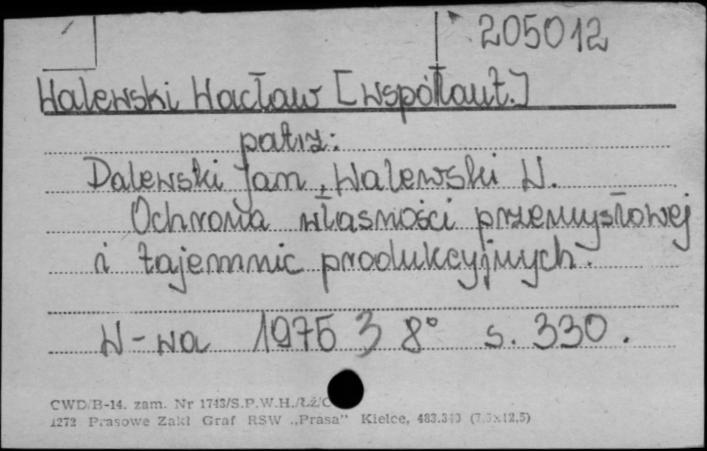 205012
Walewski Wacław [współaut.]
patrz:
Dalewski Jan, Walewski W.
Ochrona własności przemysłowej
i tajemnic produkcyjnych.
W-wa 1975 8° s. 330.
CWD/B-14. zam. Nr 1743/S.P.W.H./Łż/C
1272 Prasowe Zakł Graf RSW „Prasa" Kielce, 483.340 (7,5x12,5)